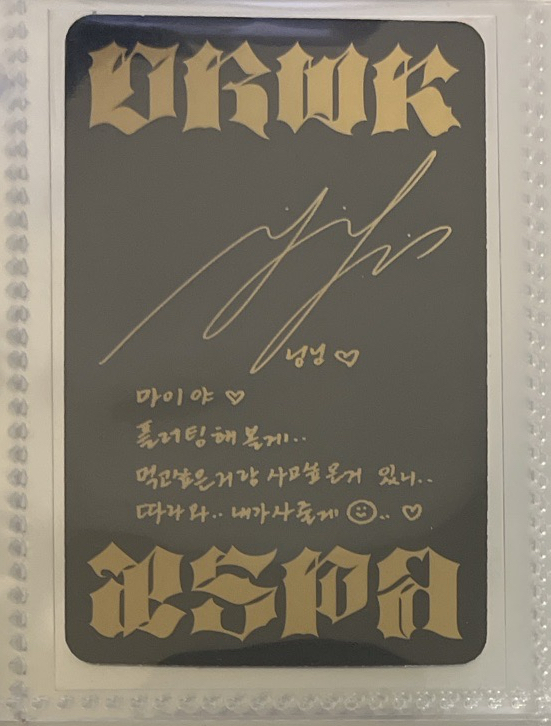 DRWR
닝닝 ♡
마이야 ♡
플러팅해볼게..
먹고싶은거랑 사고싶은거 있니..
따라와.. 내가사줄게 ☺.. ♡
aespa